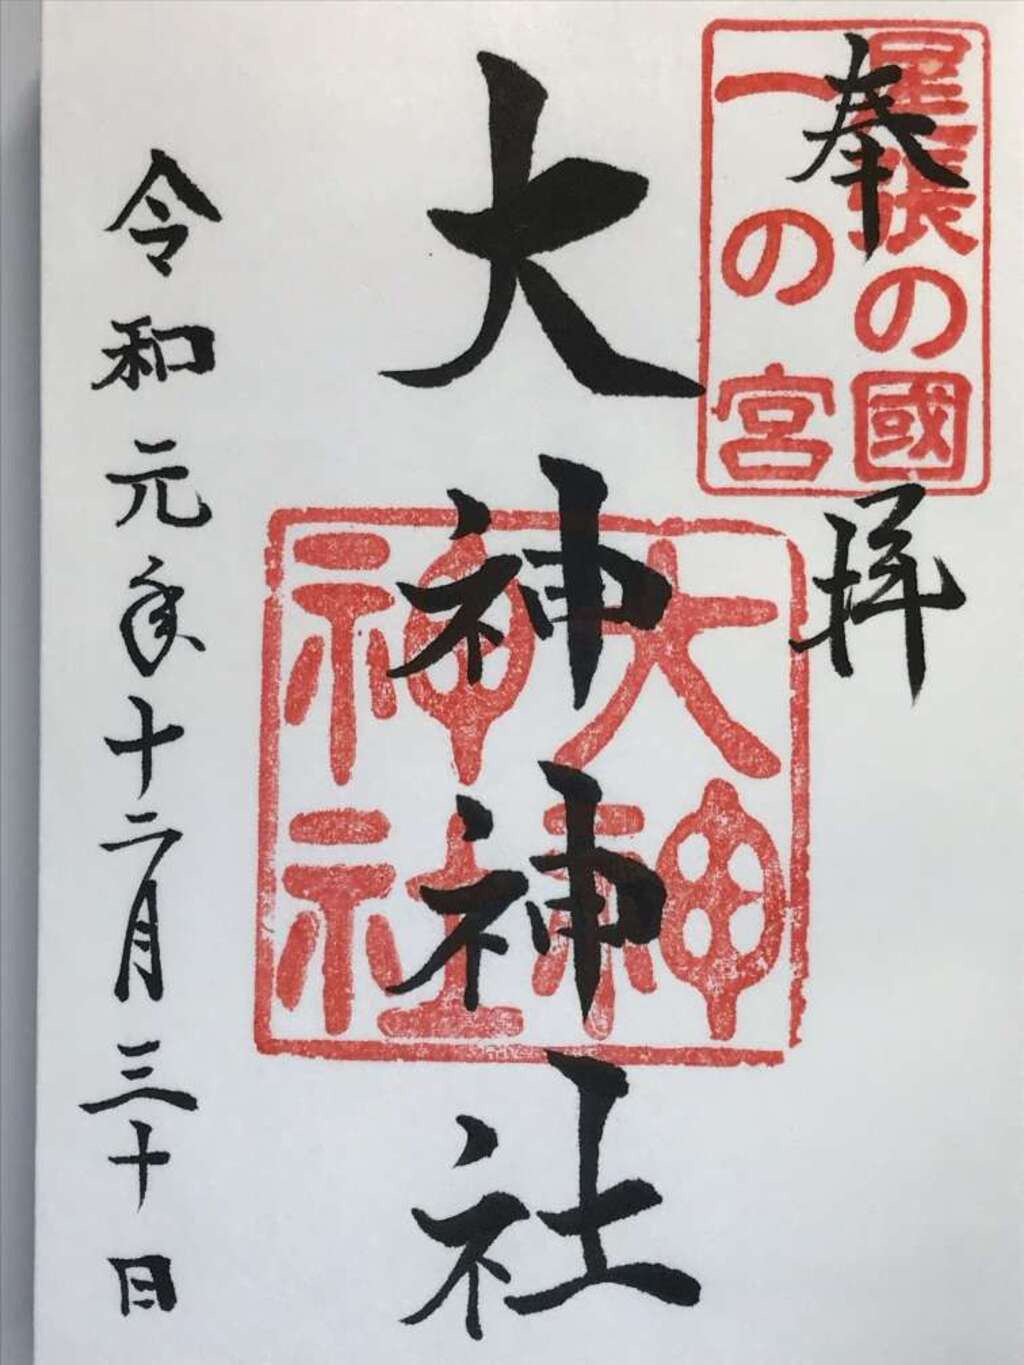 奉拝
尾張の國
一の宮
大神神社
大神
神社
令和元年十二月三十日